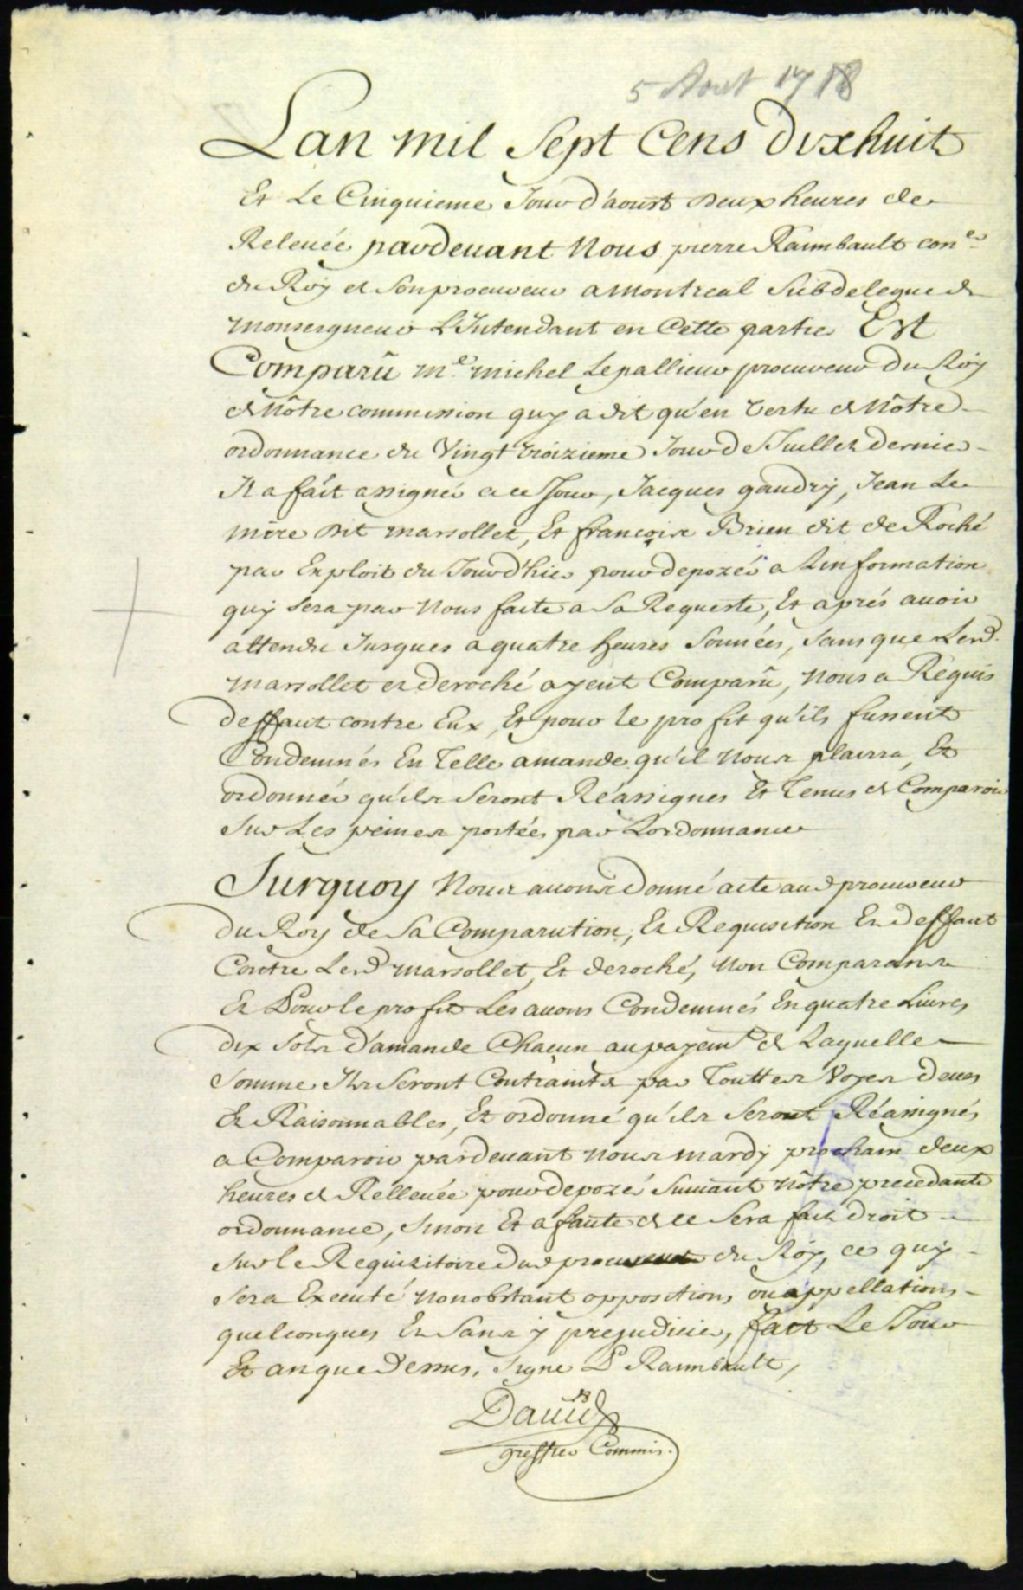 5 Aout 1718
Lan mil Sept Cens dixhuit
Et Le Cinquieme Jour d'aoust deux heures de
Releuée pardeuant Nous pierre Raimbault con.er
du Roy et Son procureur a Montreal Subdelegué de
Monseigneur L'Intendant en Cette partie Est
Comparû M.e michel Lepallieur procureur Du Roy
de Nôtre commission quy a dit qu'en Vertu de Nôtre
ordonnance du Vingt troizieme Jour de Juillet dernier
Il a fait assigner a ce Jour, Jacques gaudry, Jean Le
mire dit marsollet, Et francois Brien dit de Roché
par Exploit du Jour d'hier pour depozer a Linformation
quy Sera par Nous faite a Sa Requeste, Et aprés auoir
attendu Jusques a quatre heures Sonnées, Sans que Lesd.
marsollet et deroché ayent Comparû, Nous a Requis
deffaut contre Eux, Et pour le profit qu'ils fussent
Condemnés En Telle amande qu'il Nous plairra, Et
ordonner qu'ils Seront Réassignes Et Tenus de Comparoir
Sur Les peines portées par Lordonnance
Surquoy Nous auons Donné acte aud procureur
du Roy de Sa Comparution, Et Requisition Et deffaut
Contre Lesd marsollet, Et deroché, Non Comparans
Et Pour le profit Les auons Condemnés En quatre Liures
dix Sols D'amande Chacun au payem.t de Laquelle
Somme Ils Seront Contraints par Touttes Voyes deues
Et Raisonnables, Et ordonné qu'ils Seront Réassignés
a Comparoir pardeuant Nous mardy prochain deux
heures de Relleuée pour depozer Suiuant Nôtre precedante
ordonnance, Sinon Et a faute de ce Sera fait droit
Sur le Requizitoire dud procureur du Roy, ce quy
Sera Executé Nonobstant oppositions ou appellations
quelconques Et Sans y prejudicier, fait Le Jour
Et an que Dessus, Signe P Raimbault,
Dauid
greffier Commis.